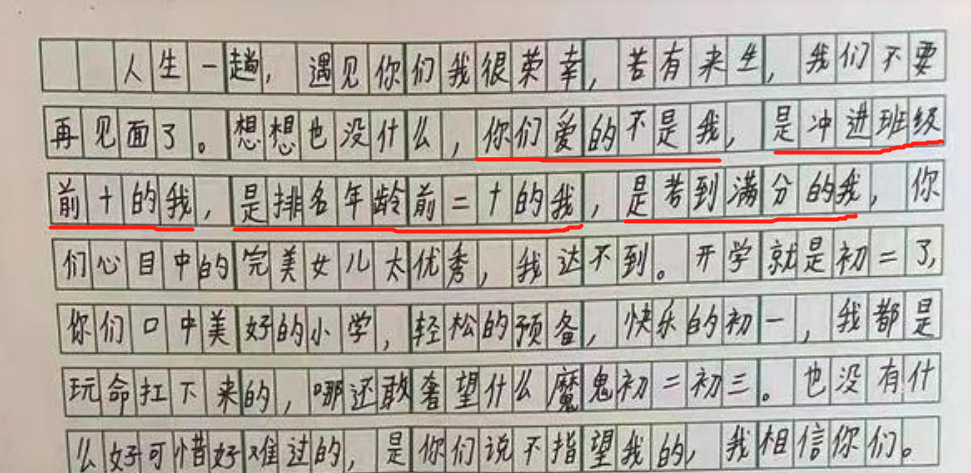 人生一趟，遇见你们我很荣幸，若有来生，我们不要
再见面了。想想也没什么，你们爱的不是我，是冲进班级
前十的我，是排名年龄前二十的我，是考到满分的我，你
们心目中的完美女儿太优秀，我达不到。开学就是初二了，
你们口中美好的小学，轻松的预备，快乐的初一，我都是
玩命扛下来的，哪还敢奢望什么魔鬼初二初三。也没有什
么好可惜好难过的，是你们说不指望我的，我相信你们。